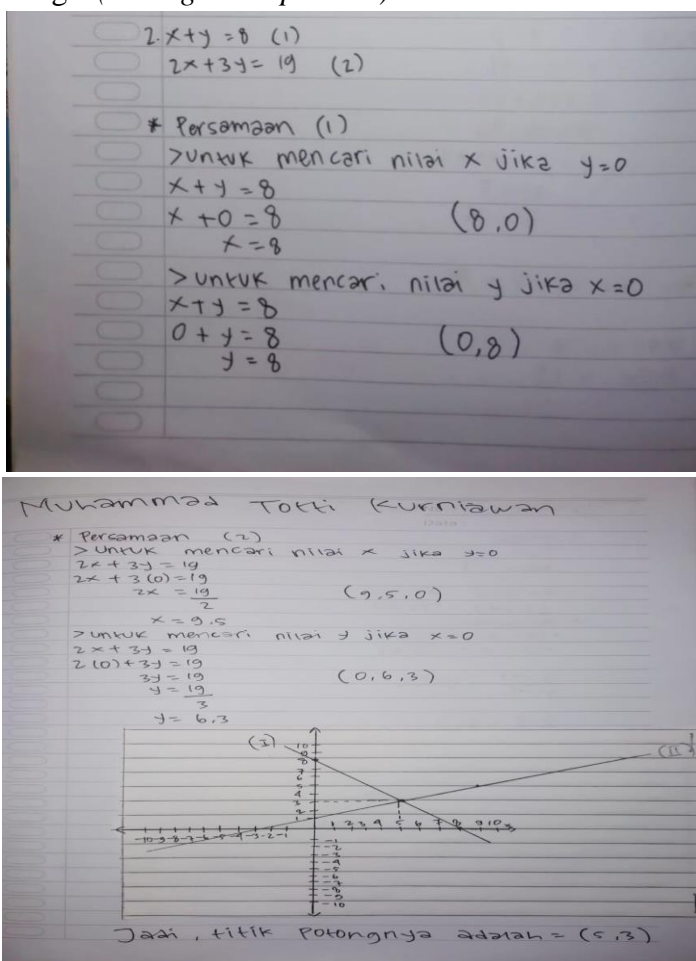 2. x+y = 8 (1)
2x+3y = 19 (2)
* Persamaan (1)
> untuk mencari nilai x jika y=0
x+y = 8
x+0 = 8 (8,0)
x = 8
> untuk mencari nilai y jika x=0
x+y = 8
0+y = 8 (0,8)
y = 8
Muhammad Totti Kurniawan
* Persamaan (2)
> untuk mencari nilai x jika y=0
2x + 3y = 19
2x + 3(0) = 19
2x = 19 (9,5,0)
2
x = 9,5
> untuk mencari nilai y jika x=0
2x + 3y = 19
2(0)+3y = 19
3y = 19 (0,6,3)
y = 19
3
y = 6,3
(I) (II)
10
9
8
7
6
5
4
3
2
1
-10 -9 -8 -7 -6 -5 -4 -3 -2 -1 1 2 3 4 5 6 7 8 9 10
-1
-2
-3
-4
-5
-6
-7
-8
-9
-10
Jadi, titik potongnya adalah = (5,3)